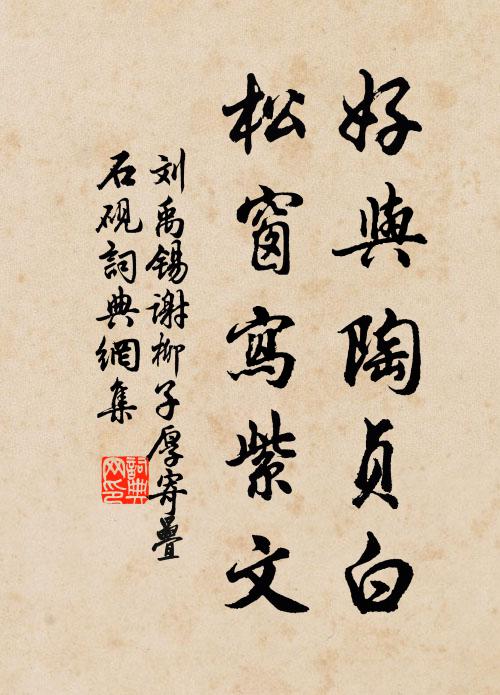 好與陶貞白
松窗寫紫文
刘禹锡谢柳子厚寄疊
石砚詞典網集
詞典網印